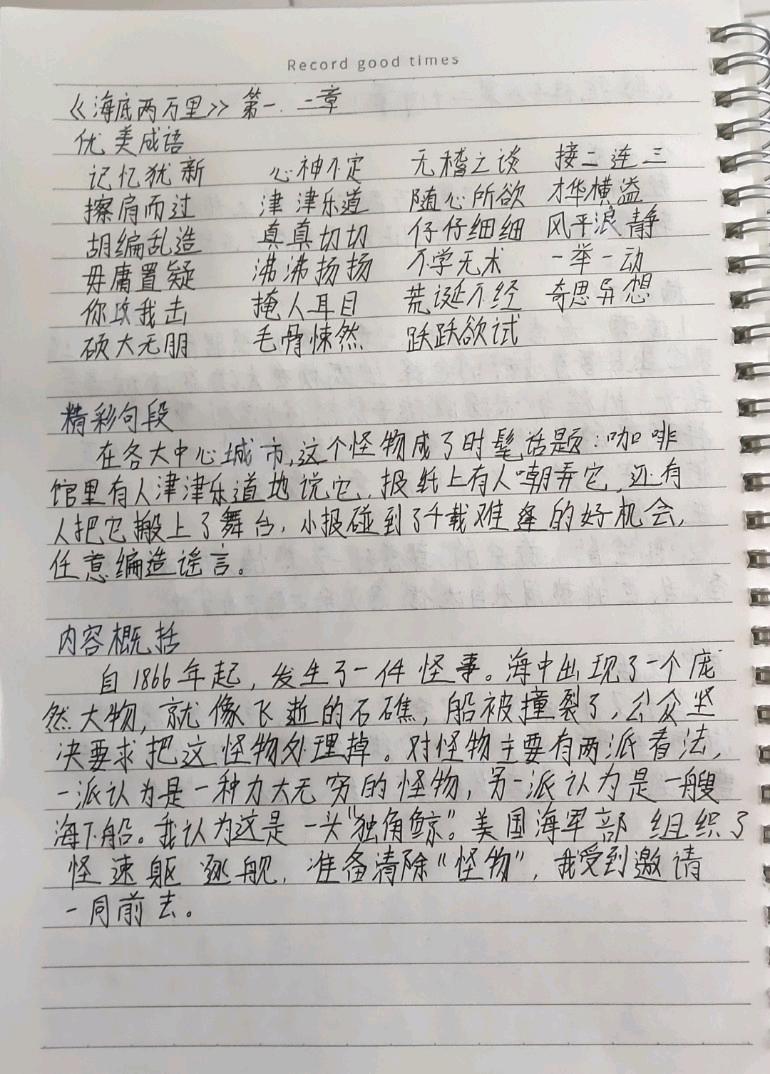 Record good times
《海底两万里》第一.二章
优美成语
记忆犹新 心神不定 无稽之谈 接二连三
擦肩而过 津津乐道 随心所欲 才华横溢
胡编乱造 真真切切 仔仔细细 风平浪静
毋庸置疑 沸沸扬扬 不学无术 一举一动
你攻我击 掩人耳目 荒诞不经 奇思异想
硕大无朋 毛骨悚然 跃跃欲试
精彩句段
在各大中心城市,这个怪物成了时髦话题:咖啡
馆里有人津津乐道地说它,报纸上有人嘲弄它,还有
人把它搬上了舞台,小报碰到了千载难逢的好机会,
任意编造谣言。
内容概括
自1866年起,发生了一件怪事。海中出现了一个庞
然大物,就像飞逝的石礁,船被撞裂了,公众坚
决要求把这怪物处理掉。对怪物主要有两派看法,
一派认为是一种力大无穷的怪物,另一派认为是一艘
海下船。我认为这是一头"独角鲸"。美国海军部组织了
怪速躯逐舰,准备清除"怪物",我受到邀请
一同前去。